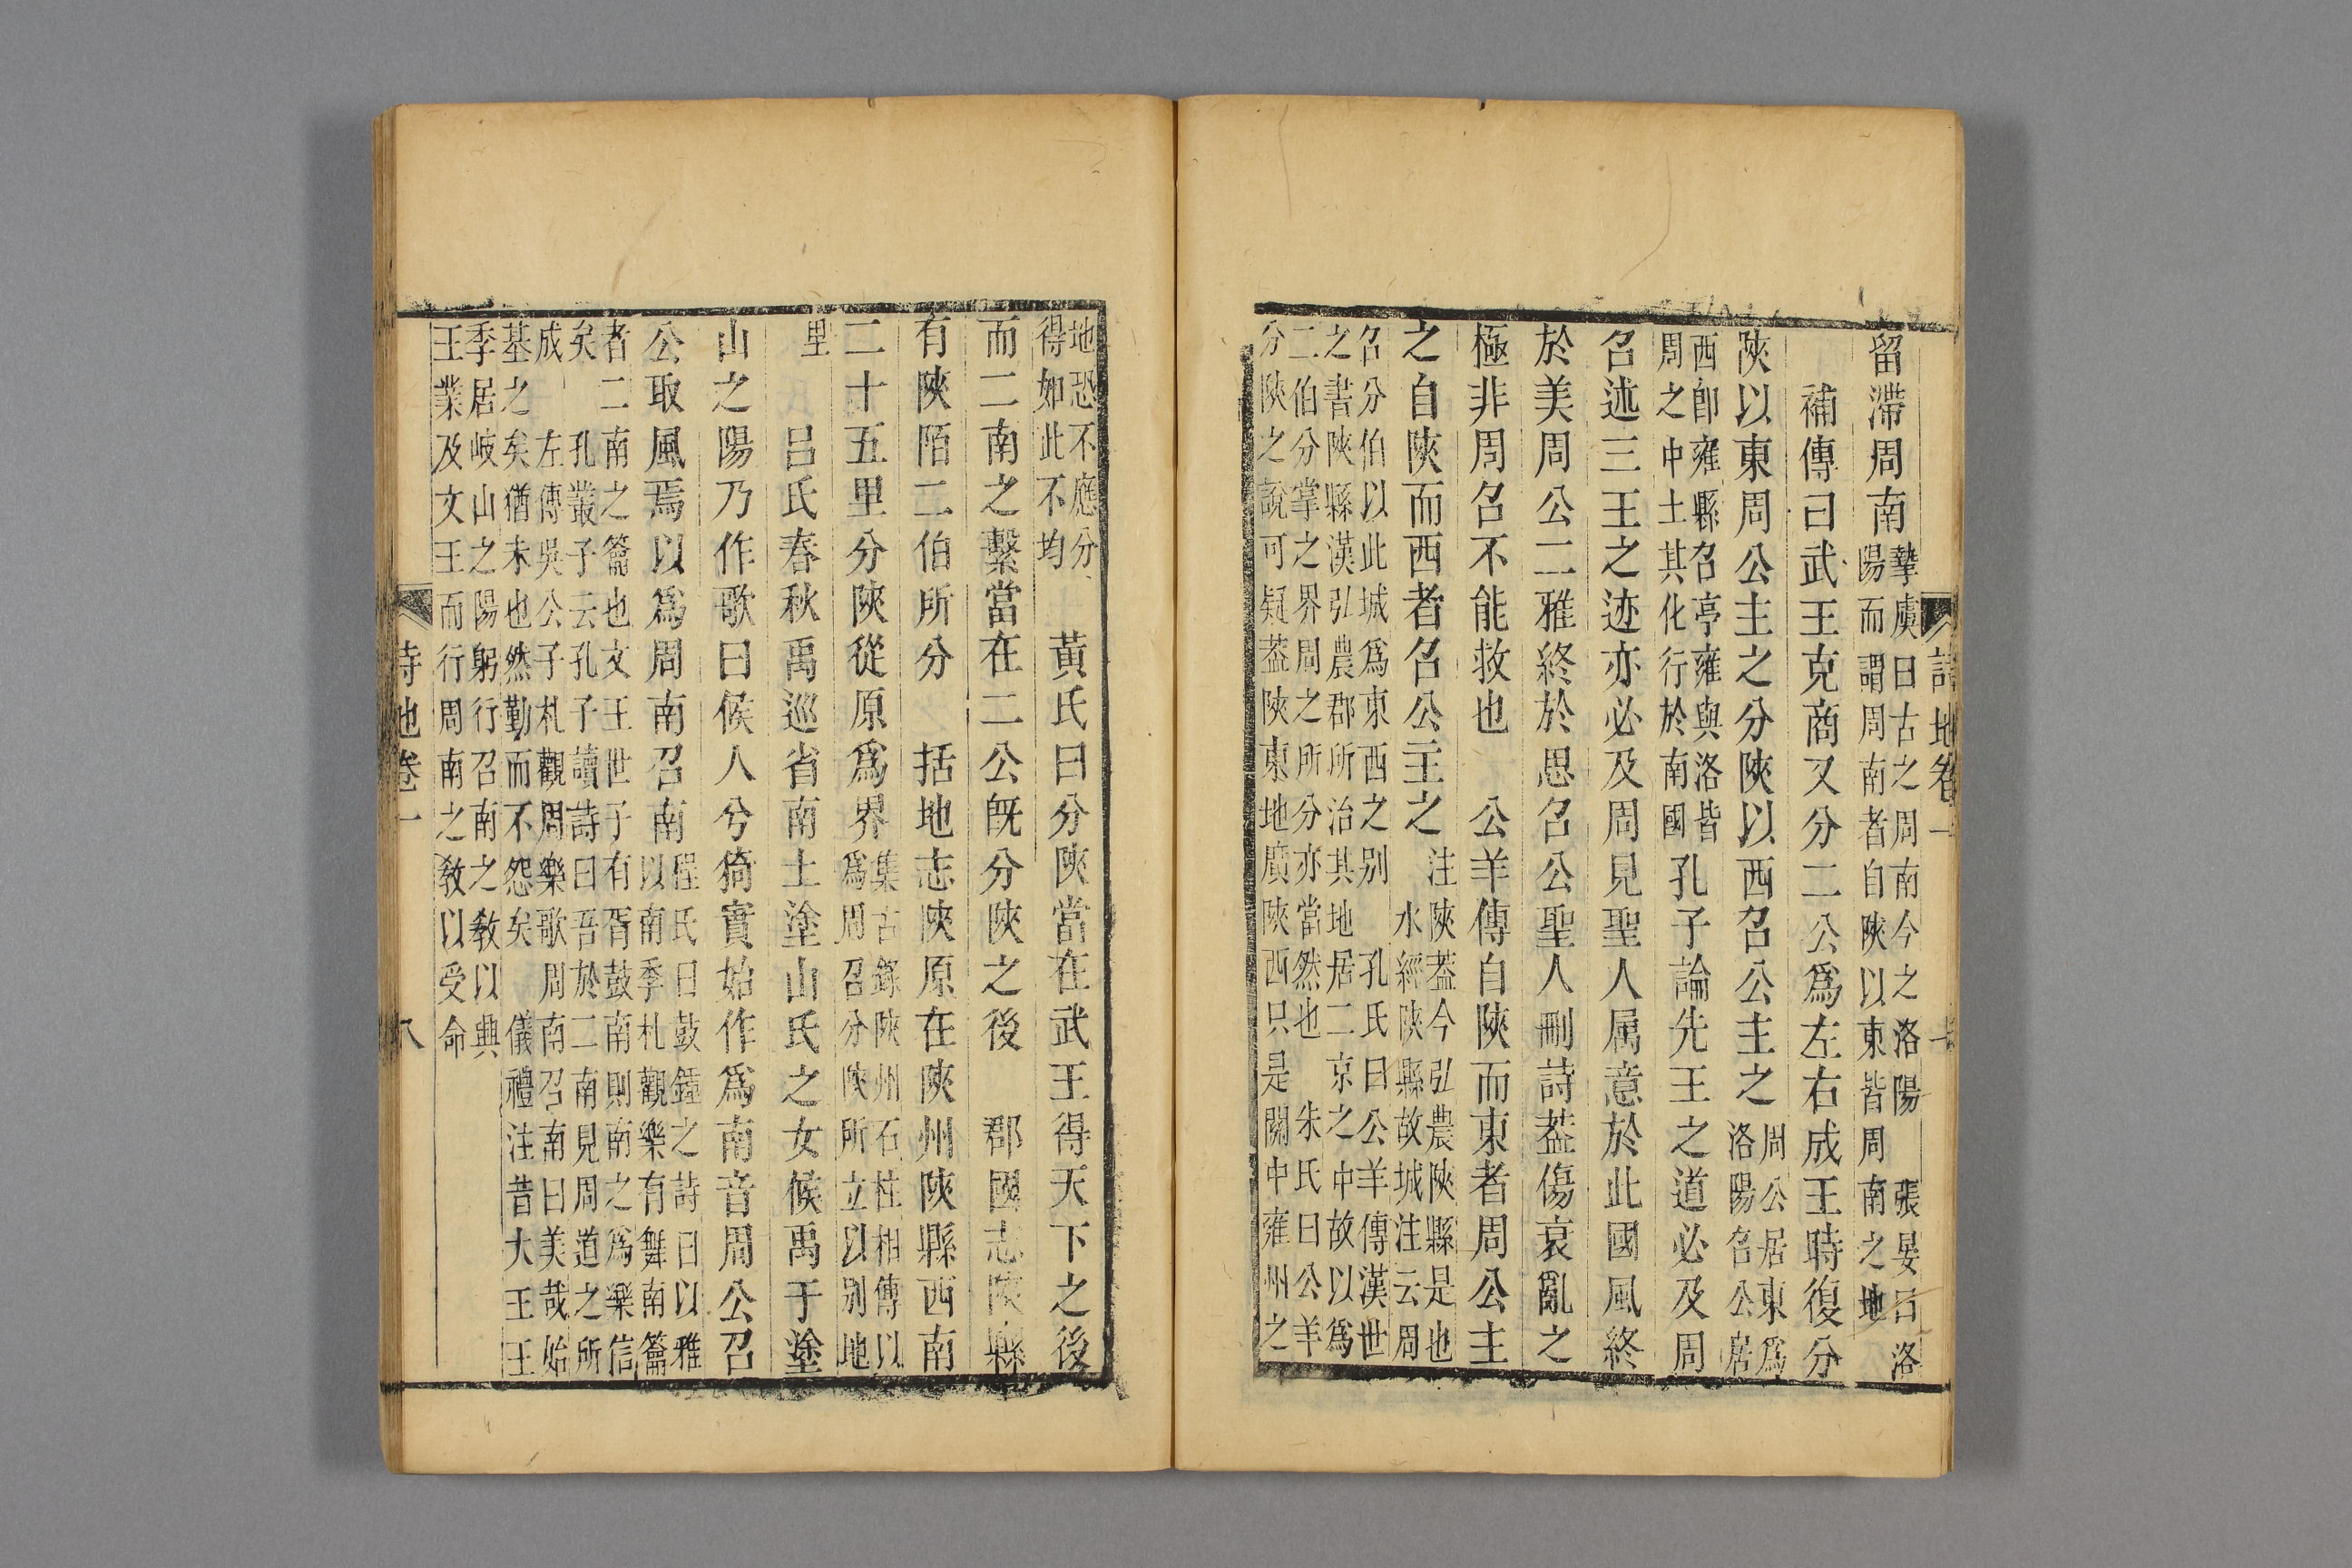 詩地卷一
留滯周南摯虞曰古之周南今之洛陽　張晏曰洛
陽而謂周南者自陝以東皆周南之地
補傳曰武王克商又分二公爲左右成王時復分
陝以東周公主之分陝以西召公主之周公居東爲
洛陽召公居
西卽雍縣召亭雍與洛皆
周之中土其化行於南國孔子論先王之道必及周
召述三王之迹亦必及周見聖人属意於此國風終
於美周公二雅終於思召公聖人刪詩葢傷衰亂之
極非周召不能救也　公羊傳自陝而東者周公主
之自陝而西者召公主之注陝葢今弘農陝縣是也
水經陝縣故城注云周
召分伯以此城爲東西之别　孔氏曰公羊傳漢世
之書陝縣漢弘農郡所治其地居二京之中故以爲
二伯分掌之界周之所分亦當然也　朱氏曰公羊
分陝之說可疑葢陝東地廣陝西只是關中雍州之
地恐不應分
得如此不均　黃氏曰分陝當在武王得天下之後
而二南之繫當在二公旣分陝之後　郡國志陝縣
有陝陌二伯所分　括地志陝原在陝州陝縣西南
二十五里分陝從原爲界集古錄陝州石柱相傳以
爲周召分陝所立以别地
里　呂氏春秋禹巡省南土塗山氏之女候禹于塗
山之陽乃作歌曰候人兮猗實始作爲南音周公召
公取風焉以爲周南召南程氏曰鼓鍾之詩曰以雅
以南季札觀樂有舞南籥
者二南之籥也文王世子有胥鼓南則南之爲樂信
矣　孔叢子云孔子讀詩曰吾於二南見周道之所
成　左傳吳公子札觀周樂歌周南召南曰美哉始
基之矣猶未也然勤而不怨矣　儀禮注昔大王王
季居岐山之陽躬行召南之敎以興
王業及文王而行周南之敎以受命
詩地卷一　八